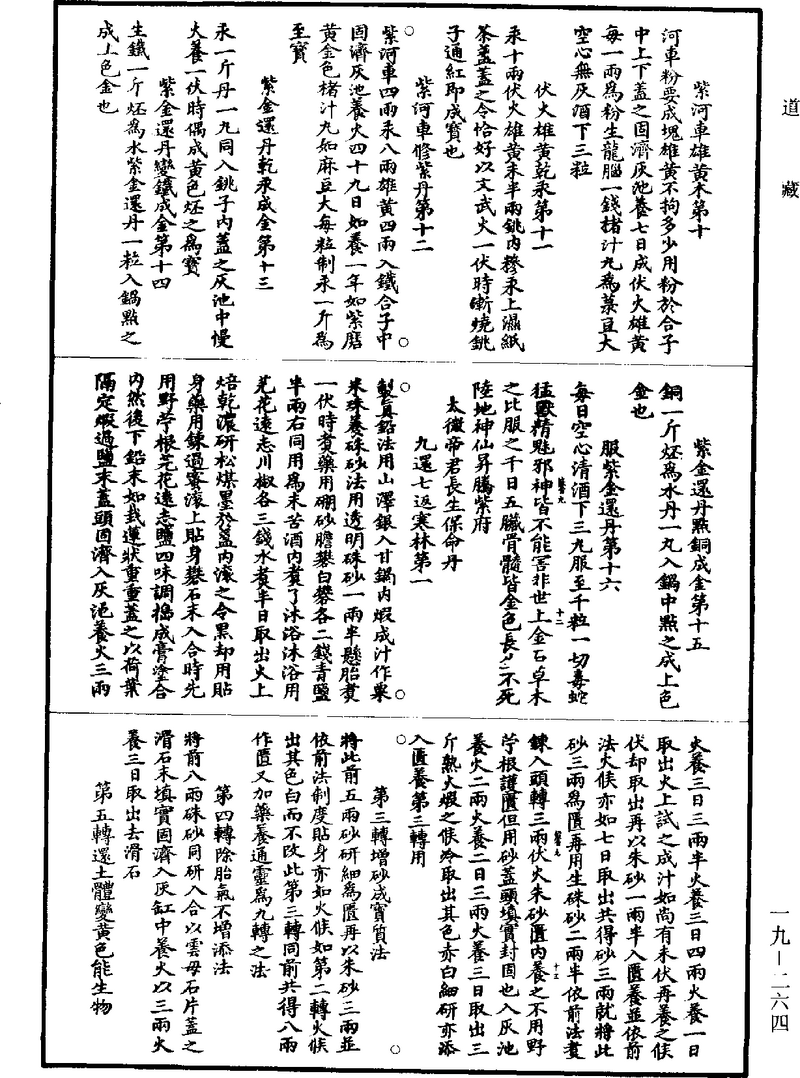 道藏
紫河車雄黃木第十
河車粉要成塊雄黃不拘多少用粉於合子
中上下蓋之固濟灰池養七日成伏火雄黃
每一兩爲粉生龍腦一錢楮汁丸爲菉豆大
空心無灰酒下三粒
伏火雄黃乾汞第十一
汞十兩伏火雄黃末半兩銚內糝汞上濕紙
茶盞蓋之令恰好以文武火一伏時漸燒銚
子通紅即成寶也
紫河車修紫丹第十二
紫河車四兩汞八兩雄黃四兩入鐵合子中
固濟灰池養火四十九日如養一年如紫磨
黃金色楮汁丸如麻豆大每粒制汞一斤爲
至寶
紫金還丹乾汞成金第十三
汞一斤丹一丸同入銚子內蓋之灰池中慢
火養一伏時偶成黃色烀之爲寶
紫金還丹變鐵成金第十四
生鐵一斤烀爲水紫金還丹一粒入鍋點之
成上色金也
紫金還丹點銅成金第十五
銅一斤烀爲水丹一丸入鍋中點之成上色
金也
服紫金還丹第十六
每日空心清酒下三丸服至千粒一切毒蛇
猛獸精魅邪神皆不能害非世上金石草木
之比服之千日五臟骨髓皆金色長生不死
陸地神仙昇騰紫府
太微帝君長生保命丹
九還七返寒林第一
製眞鉛法用山澤銀入甘鍋內煆成汁作粟
米珠養硃砂法用透明硃砂一兩半懸胎煑
一伏時煑藥用硼砂膽礬白礬各二錢青鹽
半兩右同用爲末苦酒內煑了沐浴沐浴用
芫花遠志川椒各三錢水煑半日取出火上
焙乾濃研松煤墨於盞內滚之令黑却用貼
身藥用鍊過蜜滚上貼身礬石末入合時先
用野苧根芫花遠志鹽四味調搗成膏塗合
內然後下鉛末如栽蓮狀重重蓋之以荷葉
隔定煆過鹽末蓋頭固濟入灰池養火三兩
火養三日三兩半火養三日四兩火養一日
取出火上試之成汁如尚有未伏再養之候
伏却取出再以朱砂一兩半入匱養並依前
法火候亦如七日取出共得砂三兩就將此
砂三兩爲匱再用生硃砂二兩半依前法煑
鍊入頭轉三兩伏火朱砂匱內養之不用野
苧根護匱但用砂蓋頭填實封固也入灰池
養火二兩火養二日三兩火養三日取出三
斤熟火煆之候冷取出其色亦白細研亦添
入匱養第三轉用
第三轉增砂成寶質法
將此前五兩砂研細爲匱再以朱砂三兩並
依前法制度貼身亦如火候如第二轉火候
出其色白而不改此第三轉同前共得八兩
作匱又加藥養通靈爲九轉之法
第四轉除胎氣不增添法
將前八兩硃砂同研入合以雲母石片蓋之
滑石末填實固濟入灰缸中養火以三兩火
養三日取出去滑石
第五轉還土體變黃色能生物
一九—二六四